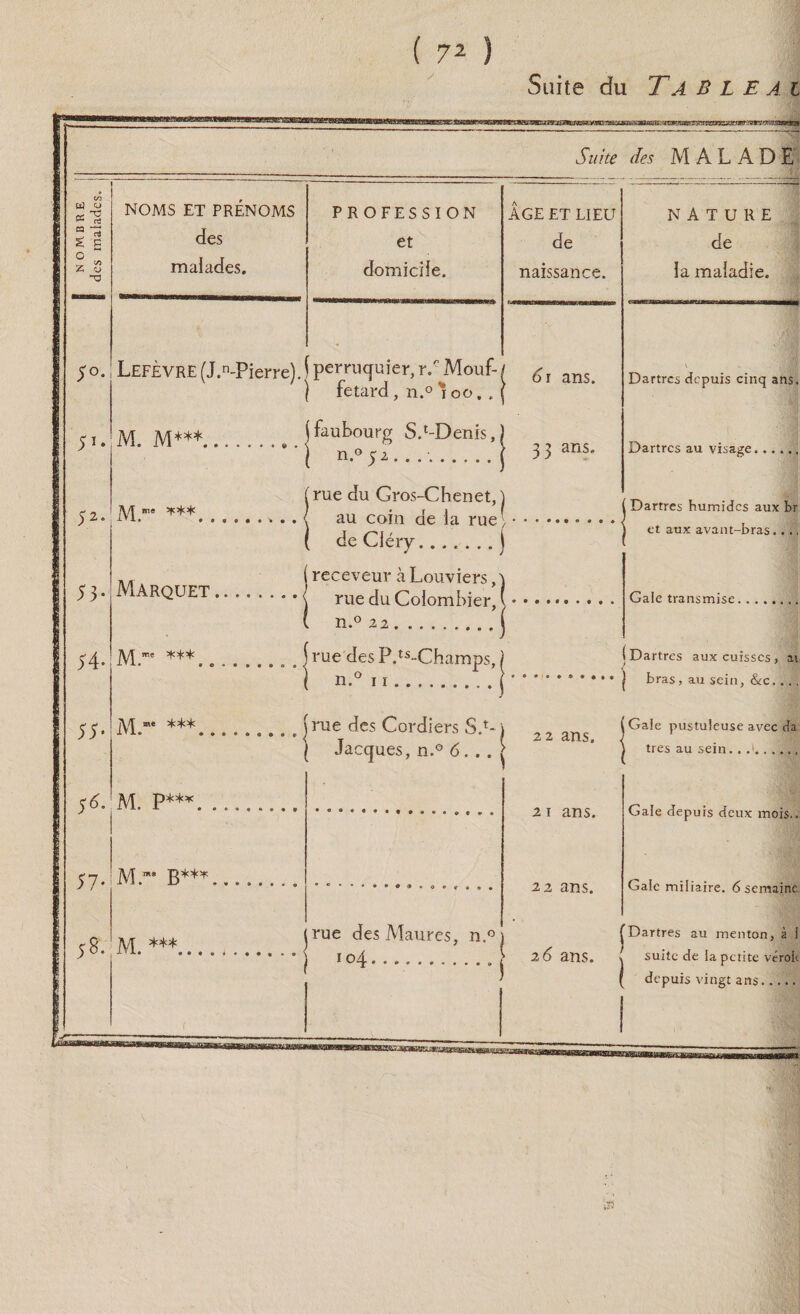 ( 72 )
Suite du TABLEAU
Suite des MALADE
NOMBRE des malades.
NOMS ET PRÉNOMS des malades.
PROFESSION et domicile.
ÂGE ET LIEU de naissance.
NATURE de la maladie.
50. LEFÈVRE (J.n-Pierre). perruquier, r.e Mouf- 61 ans. Dartres depuis cinq ans.
fetard, n.o 100..
51. M. M***......... faubourg S.t-Denis, 33 ans. Dartres au visage......
n.o 52..........
52. M.me ***......... rue du Gros-Chenet, .......... Dartres humides aux br
au coin de la rue et aux avant-bras....
de Cléry.......
53. MARQUET........ receveur à Louviers, .......... Gale transmise........
rue du Colombier,
n.o 22.........
54. M.me ***......... rue des P.ts-Champs, .......... Dartres aux cuisses, au
n.o 11.......... bras, au sein, &c....
55. M.me ***......... rue des Cordiers S.t- 22 ans. Gale pustuleuse avec da
Jacques, n.o 6... tres au sein.........
56. M. P***.......... .................. 21 ans. Gale depuis deux mois..
57. M.me B***........ .................. 22 ans. Gale miliaire. 6 semaine
58. M. ***........... rue des Maures, n.o 26 ans. Dartres au menton, à l
104............ suite de la petite vérole
depuis vingt ans.....